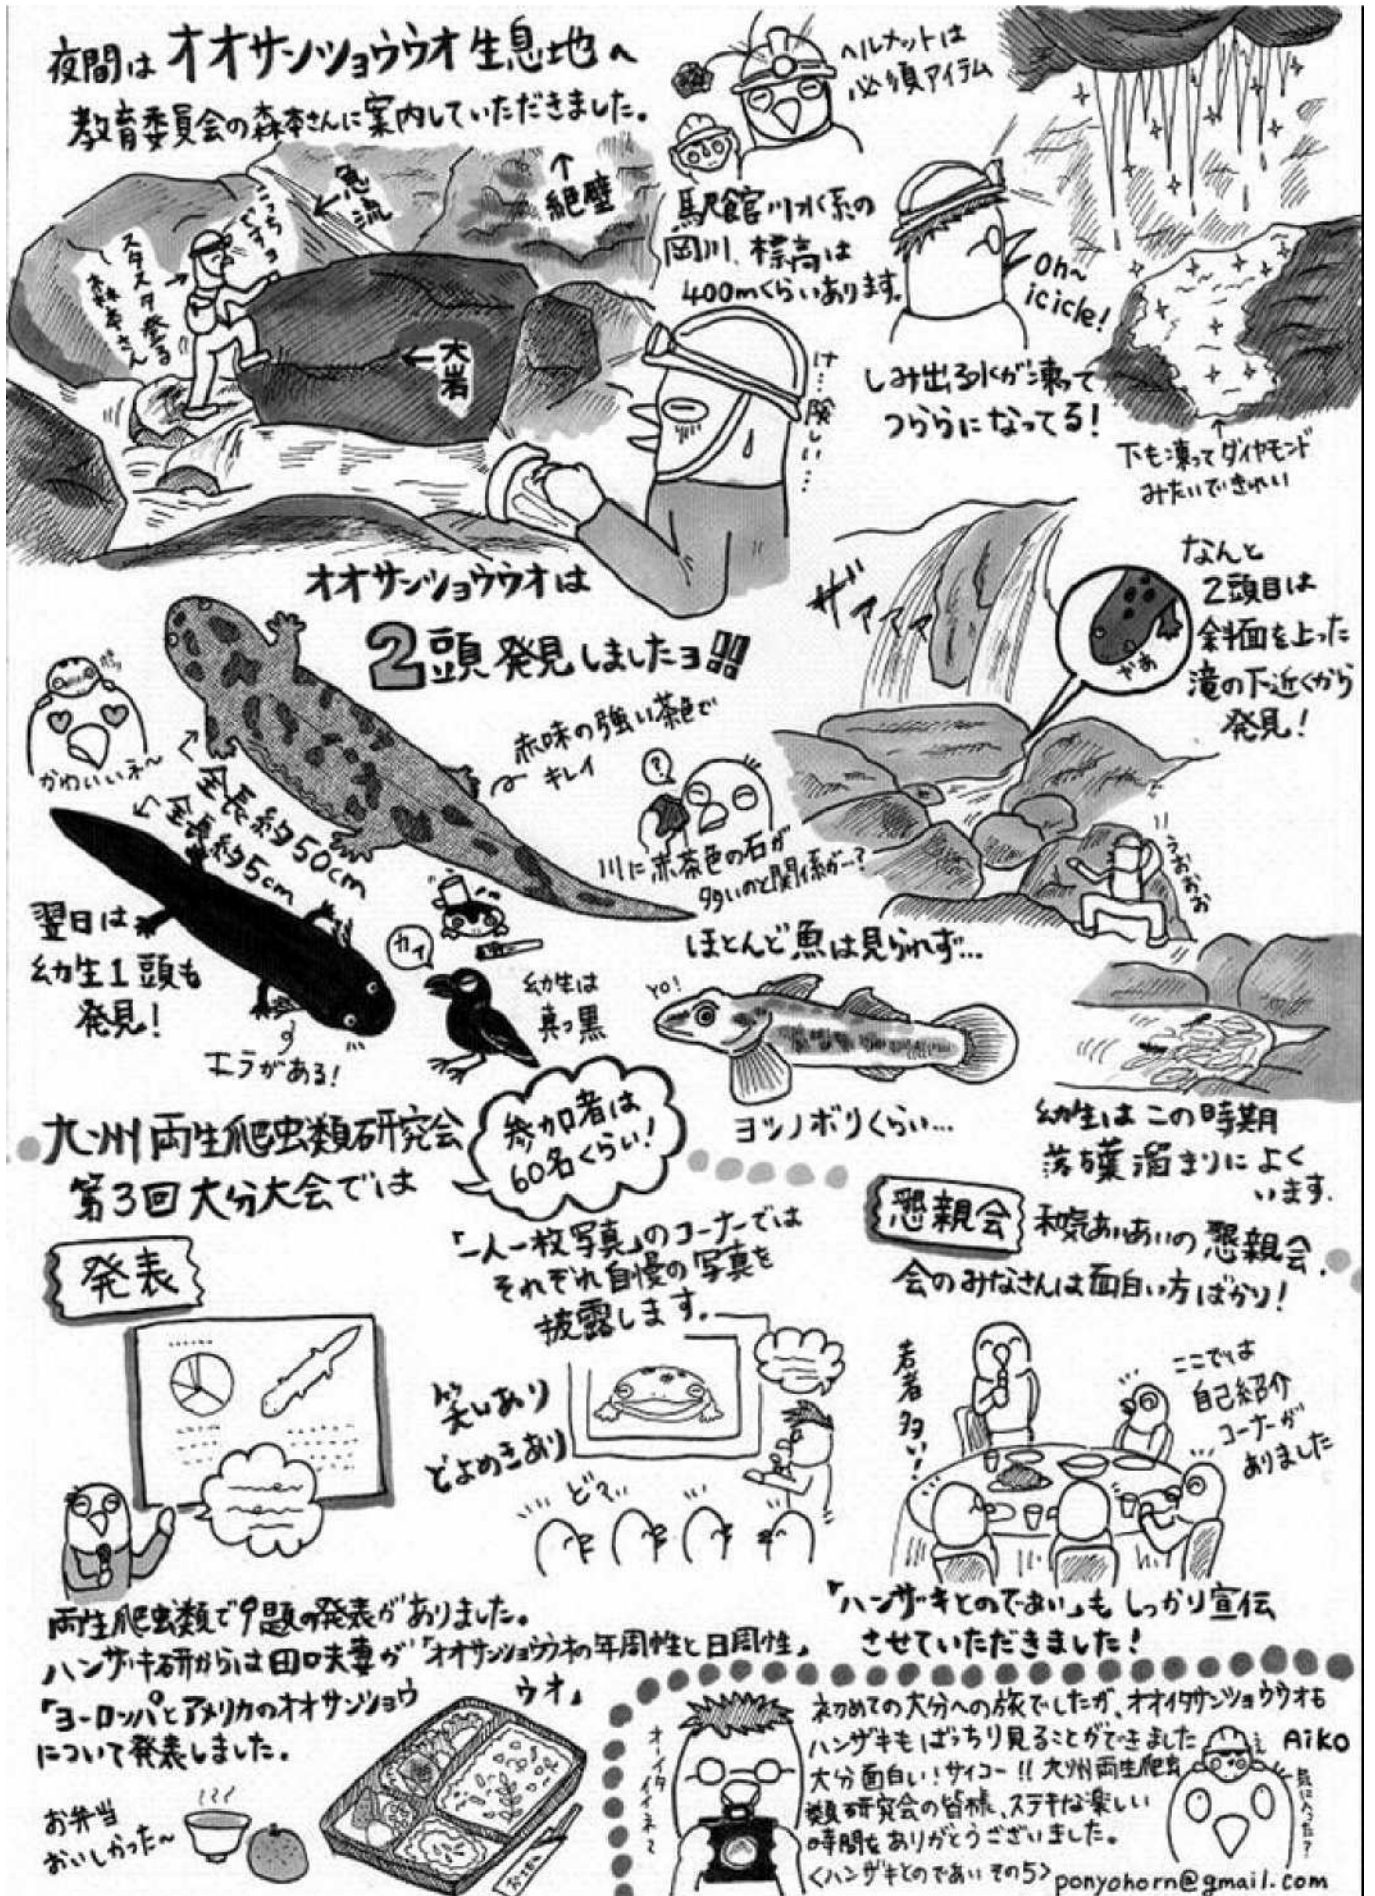 夜間は オオサンショウウオ 生息地へ
教育委員会の森本さんに案内していただきました。
ヘルメットは
必須アイテム
↑
絶壁
急流
こっち
ですョ
スタスタ登る
森本さん
大岩
け…険しい…
駅館川水系の
岡川、標高は
400mくらいあります。
Oh~
icicle!
しみ出る水が凍って
つららになってる!
↑
下も凍ってダイヤモンド
みたいできれい
オオサンショウウオは
2頭 発見しましたョ!!
かわいいネ~
全長約50cm
全長約5cm
赤味の強い茶色で
キレイ
?
川に赤茶色の石が
多いのと関係が…?
ザァァァァ
なんと
2頭目は
斜面を上った
滝の下近くから
発見!
やあ
うおぉぉ
翌日は
幼生1頭も
発見!
エラがある!
カァ
幼生は
真っ黒
ほとんど魚は見られず…
YO!
ヨシノボリくらい…
幼生はこの時期
落ち葉溜まりによく
います。
九州両生爬虫類研究会
第3回大分大会では
参加者は
60名くらい!
発表
「一人一枚写真」のコーナーでは
それぞれ自慢の写真を
披露します。
笑いあり
どよめきあり
懇親会
和気あいあいの懇親会、
会のみなさんは面白い方ばかり!
若者多い!
ここでは
自己紹介
コーナーが
ありました
両生爬虫類で9題の発表がありました。
ハンザキ研からは田口夫妻が「オオサンショウウオの年周性と日周性」
「ヨーロッパとアメリカのオオサンショウウオ」
について発表しました。
お弁当
おいしかった~
「ハンザキとのであい」も しっかり宣伝
させていただきました!
オーイタ
イイネ~
初めての大分への旅でしたが、オオイタサンショウウオも
ハンザキもばっちり見ることができました
大分面白い!サイコー!!九州両生爬虫
類研究会の皆様、ステキな楽しい
時間をありがとうございました。
<ハンザキとのであい その5>
Aiko
気に入った?
ponyohorn@gmail.com